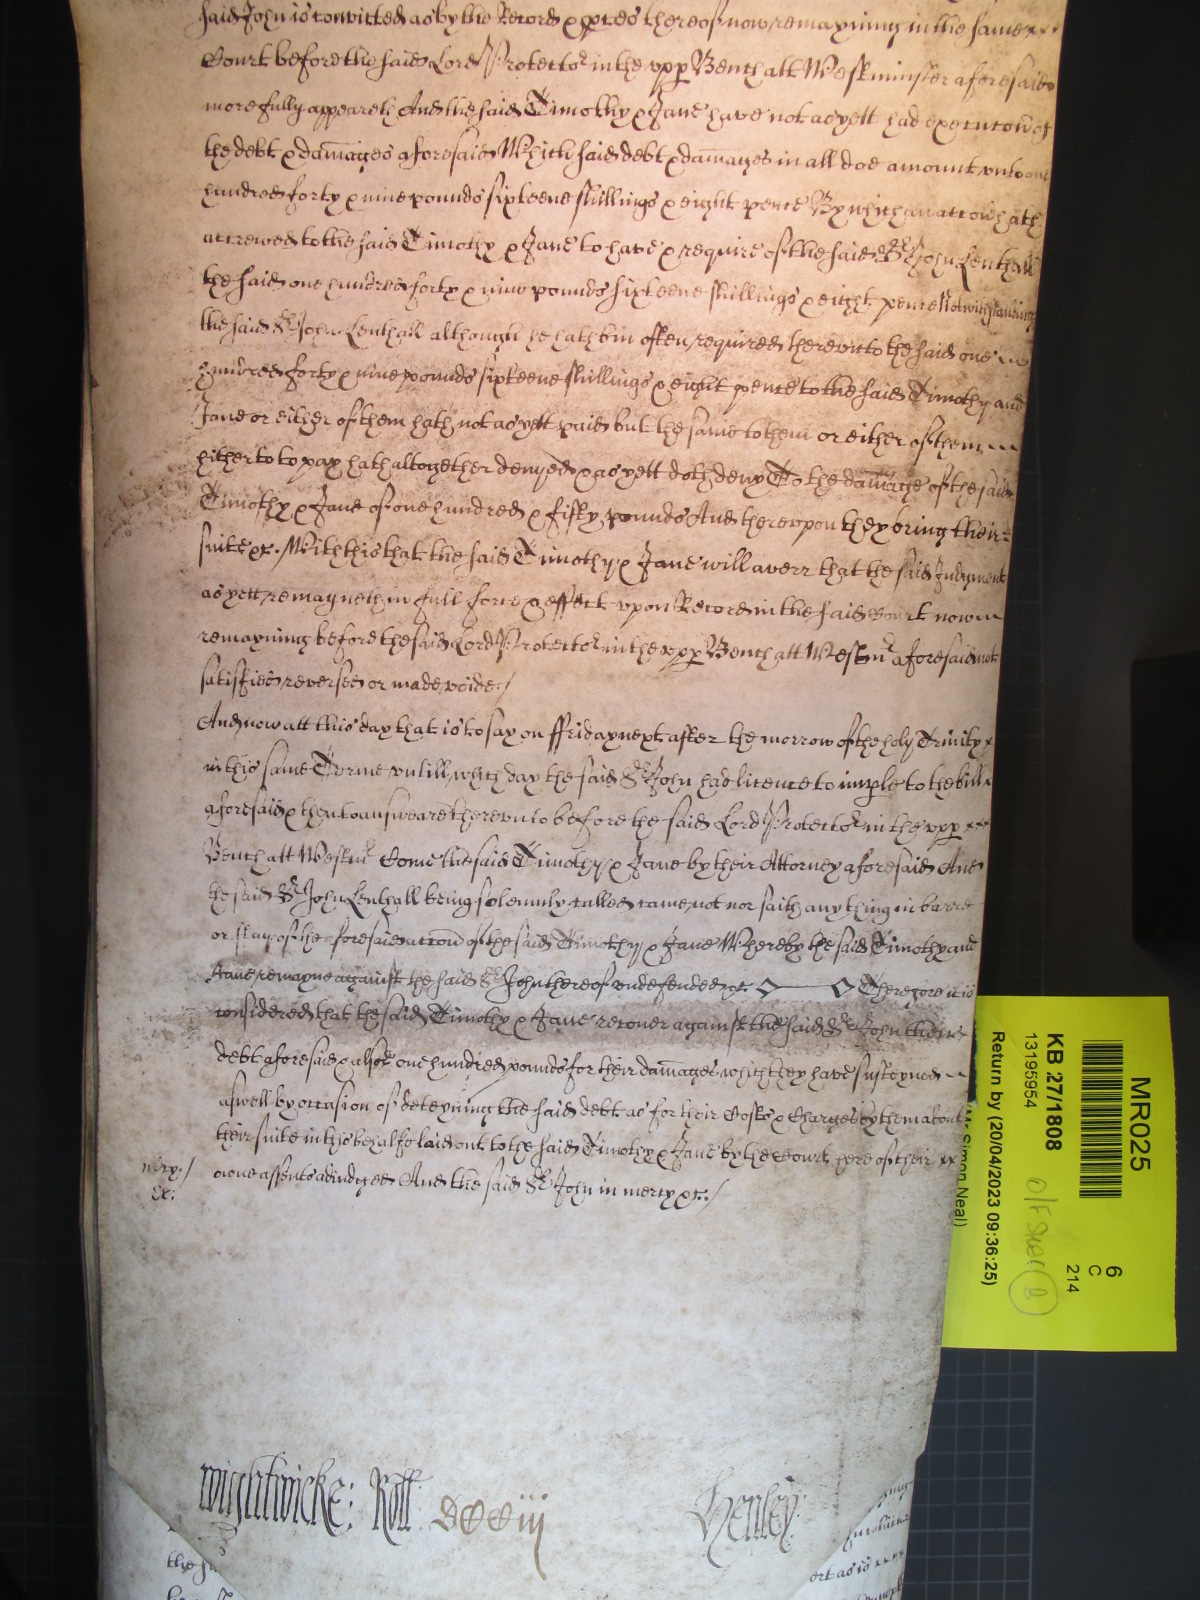 said John is convicted as by the Record & p̱ces thereof now remayning in the same
Court before the said Lord Protector in the vpp Bench att Westminster aforesaid
more fully appeareth And the said Timothy & Jane have not as yett had execucōn of
the debt & dam̄ages aforesaid Which said debt & dam̄ages in all doe amount vnto one
hundred forty & nine pounds sixteene shillings & eight pence By which an accōn hath
accrewed to the said Timothy & Jane to have & require of the said Sr John Lenthall
the said one hundred forty & nine pounds sixteene shillings & eight pence Notwithstanding
the said Sr John Lenthall although he hath bin often required therevnto the said one
hundred forty & nine pounds sixteene shillings & eight pence to the said Timothy and
Jane or either of them hath not as yett paid but the same to them or either of them
hitherto to pay hath altogether denyed & as yett doth deny To the dam̄age of the said
Timothy & Jane of one hundred & fifty pounds And therevpon they bring their
suite &c. With this that the said Timothy & Jane will averr that the said Judgment
as yett remayneth in full force & effect vpon Record in the said Court now
remayning before the said Lord Protector in the vpp Bench att Westmr aforesaid not
satisfied reversed or made voide./
And now att this day that is to say on ffriday next after the morrow of the holy Trinity
in this same Terme vntill which day the said Sr John had licence to imple to the bill
aforesaid & then to answeare therevnto before the said Lord Protector in the vpp
Bench att Westmr Come the said Timothy & Jane by their Attorney aforesaid And
the said Sr John Lenthall being solemnly called came not nor saith any thing in barre
or stay of the foresaid accōn of the said Timothy & Jane Whereby the said Timothy and
Jane remayne against the said Sr John thereof vndefended &c. Therefore it is
considered that the said Timothy & Jane recover against the said Sr John their
debt aforesaid & alsoe one hundred pounds for their dam̄ages which they have susteyned
aswell by occasion of deteyning the said debt as for their Costs & Charges by them about
their suite in this behalfe laid out to the said Timothy & Jane by the Court here of their
owne assent adiudged And the said Sr John in mercy &c./
mercy./
&c:
Wightwicke: Roll
Henley
MR025
6
C
214
KB 27/1808
13195954
Return by (20/04/2023 09:36:25)
(Mr Simon Neal)